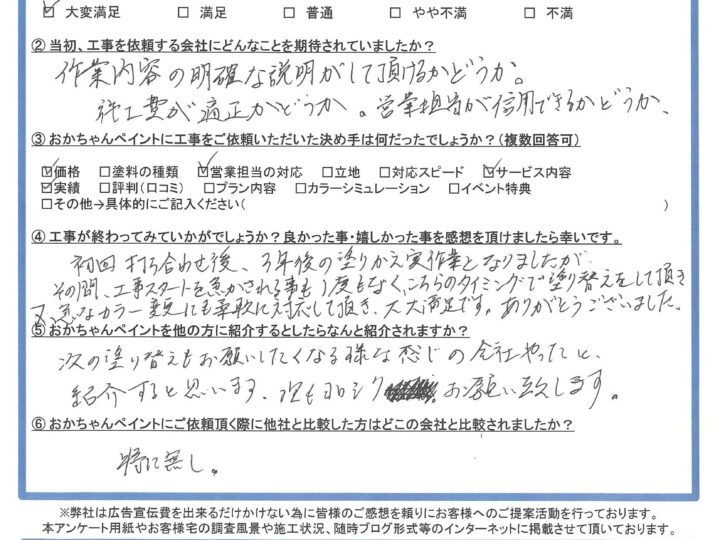 ☑大変満足 □満足 □普通 □やや不満 □不満
②当初、工事を依頼する会社にどんなことを期待されていましたか？
作業内容の明確な説明がして頂けるかどうか。
施工費が適正かどうか。営業担当が信用できるかどうか、
③おかちゃんペイントに工事をご依頼いただいた決め手は何だったでしょうか？(複数回答可)
☑価格 □塗料の種類 ☑営業担当の対応 □立地 □対応スピード ☑サービス内容
☑実績 □評判(口コミ) □プラン内容 □カラーシミュレーション □イベント特典
□その他→具体的にご記入ください( )
④工事が終わってみていかがでしょうか？良かった事・嬉しかった事を感想を頂けましたら幸いです。
初回打ち合わせ後、3年後の塗りかえ実作業となりましたが、
その間、工事スタートを急かされる事も1度もなく、こちらのタイミングで塗り替えをして頂き
又、急なカラー変更にも柔軟に対応して頂き、大大満足です。ありがとうございました。
⑤おかちゃんペイントを他の方に紹介するとしたらなんと紹介されますか？
次の塗り替えもお願いしたくなる様な感じの会社やったと、
紹介すると思います、次もヨロシク お願い致します。
⑥おかちゃんペイントにご依頼頂く際に他社と比較した方はどこの会社と比較されましたか？
特に無し。
※弊社は広告宣伝費を出来るだけかけない為に皆様のご感想を頼りにお客様へのご提案活動を行っております。
本アンケート用紙やお客様宅の調査風景や施工状況、随時ブログ形式等のインターネットに掲載させて頂いております。